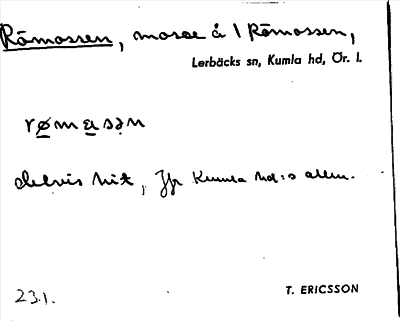 Römossen, mosse å 1 Römossen,
Lerbäcks sn, Kumla hd, Ör. l.
rømasən
delvis hit, Jfr Kumla hd:s allm.
231.
T. ERICSSON